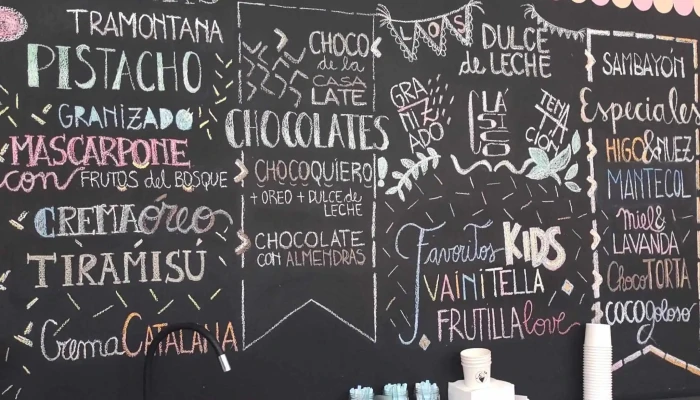 TRAMONTANA
PISTACHO
GRANIZADO
MASCARPONE
con FRUTOS del BOSQUE
CREMA óreo
TIRAMISÚ
Crema CATALANA
CHOCO
de la
CASA
LATE
CHOCOLATES
CHOCOQUIERO!
+ OREO + DULCE de
LECHE
CHOCOLATE
CON ALMENDRAS
LOS
DULCE
de LECHE
GRA
NIZ
ADO
CLÁ
SI
CO
TEN
TA
CIÓN
Favoritos KIDS
VAINITELLA
FRUTILLA love
SAMBAYÓN
Especiales
HIGO&NUEZ
MANTECOL
miel&
LAVANDA
ChocoTORTA
COCOgoloso